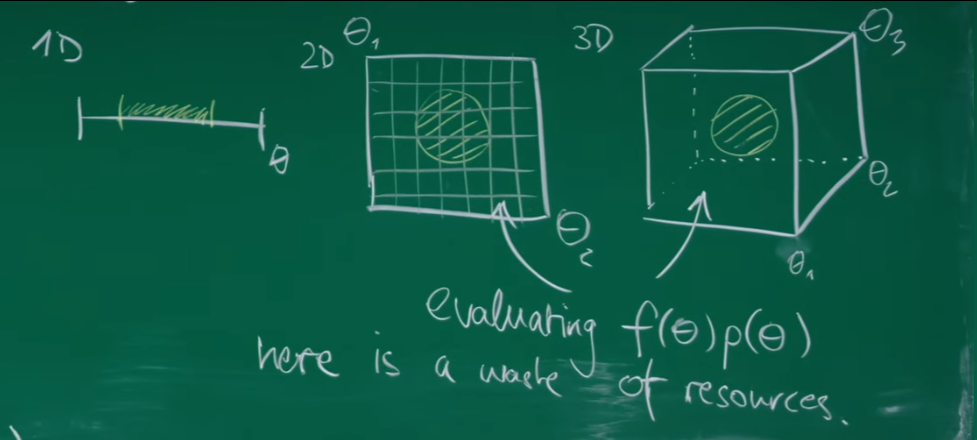 1D
θ
2D
θ₁
θ₂
3D
θ₃
θ₂
θ₁
evaluating f(θ)p(θ)
here is a waste of resources.